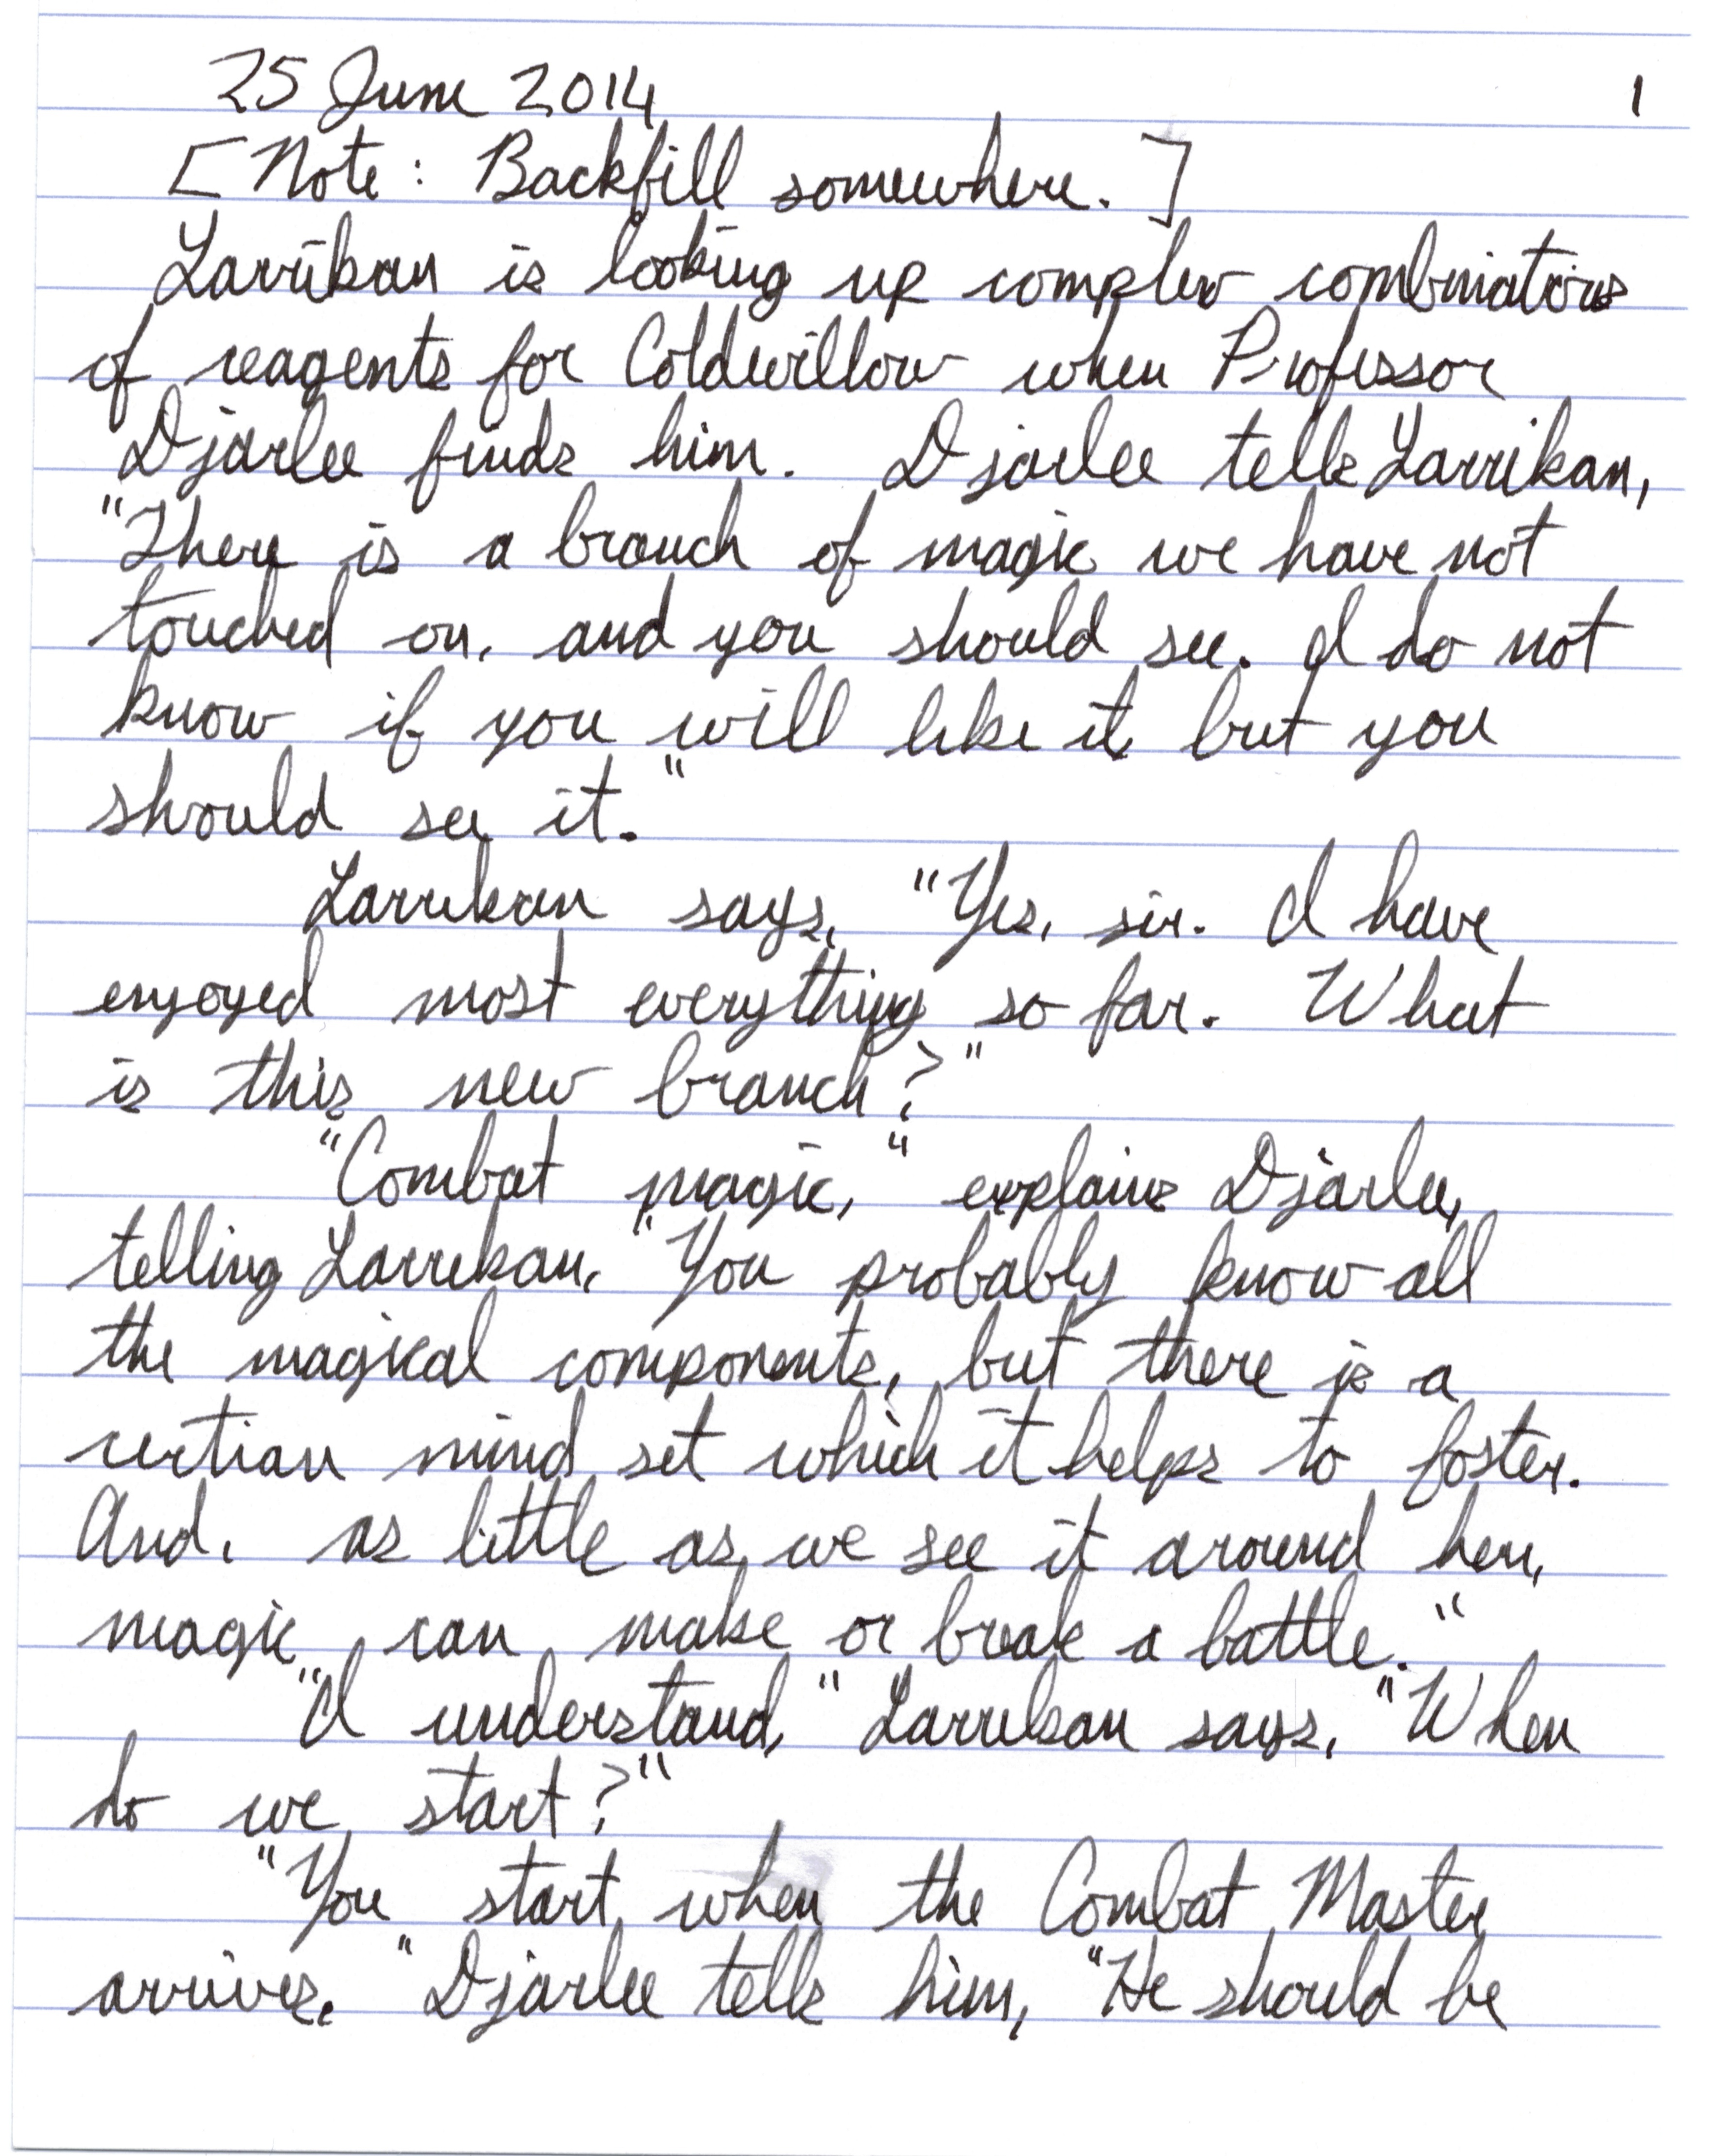 25 June 2014 1
[Note: Backfill somewhere.]
Larrikan is looking up complex combinations
of reagents for Coldwillow when Professor
Djarlee finds him. Djarlee tells Larrikan,
"There is a branch of magic we have not
touched on, and you should see. I do not
know if you will like it, but you
should see it."
Larrikan says, "Yes, sir. I have
enjoyed most everything so far. What
is this new branch?"
"Combat magic," explains Djarlee,
telling Larrikan, "You probably know all
the magical components, but there is a
certian mind set which it helps to foster.
And, as little as we see it around here,
magic can make or break a battle."
"I understand," Larrikan says, "When
do we start?"
"You start when the Combat Master
arrives." Djarlee tells him, "He should be